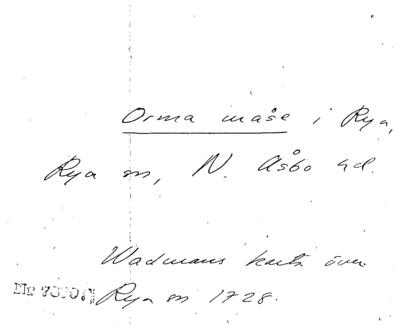 Orma måse i Rya,
Rya sn, N. Åsbo hd.
Wadmans karta över
Rya sn 1728.
Nr